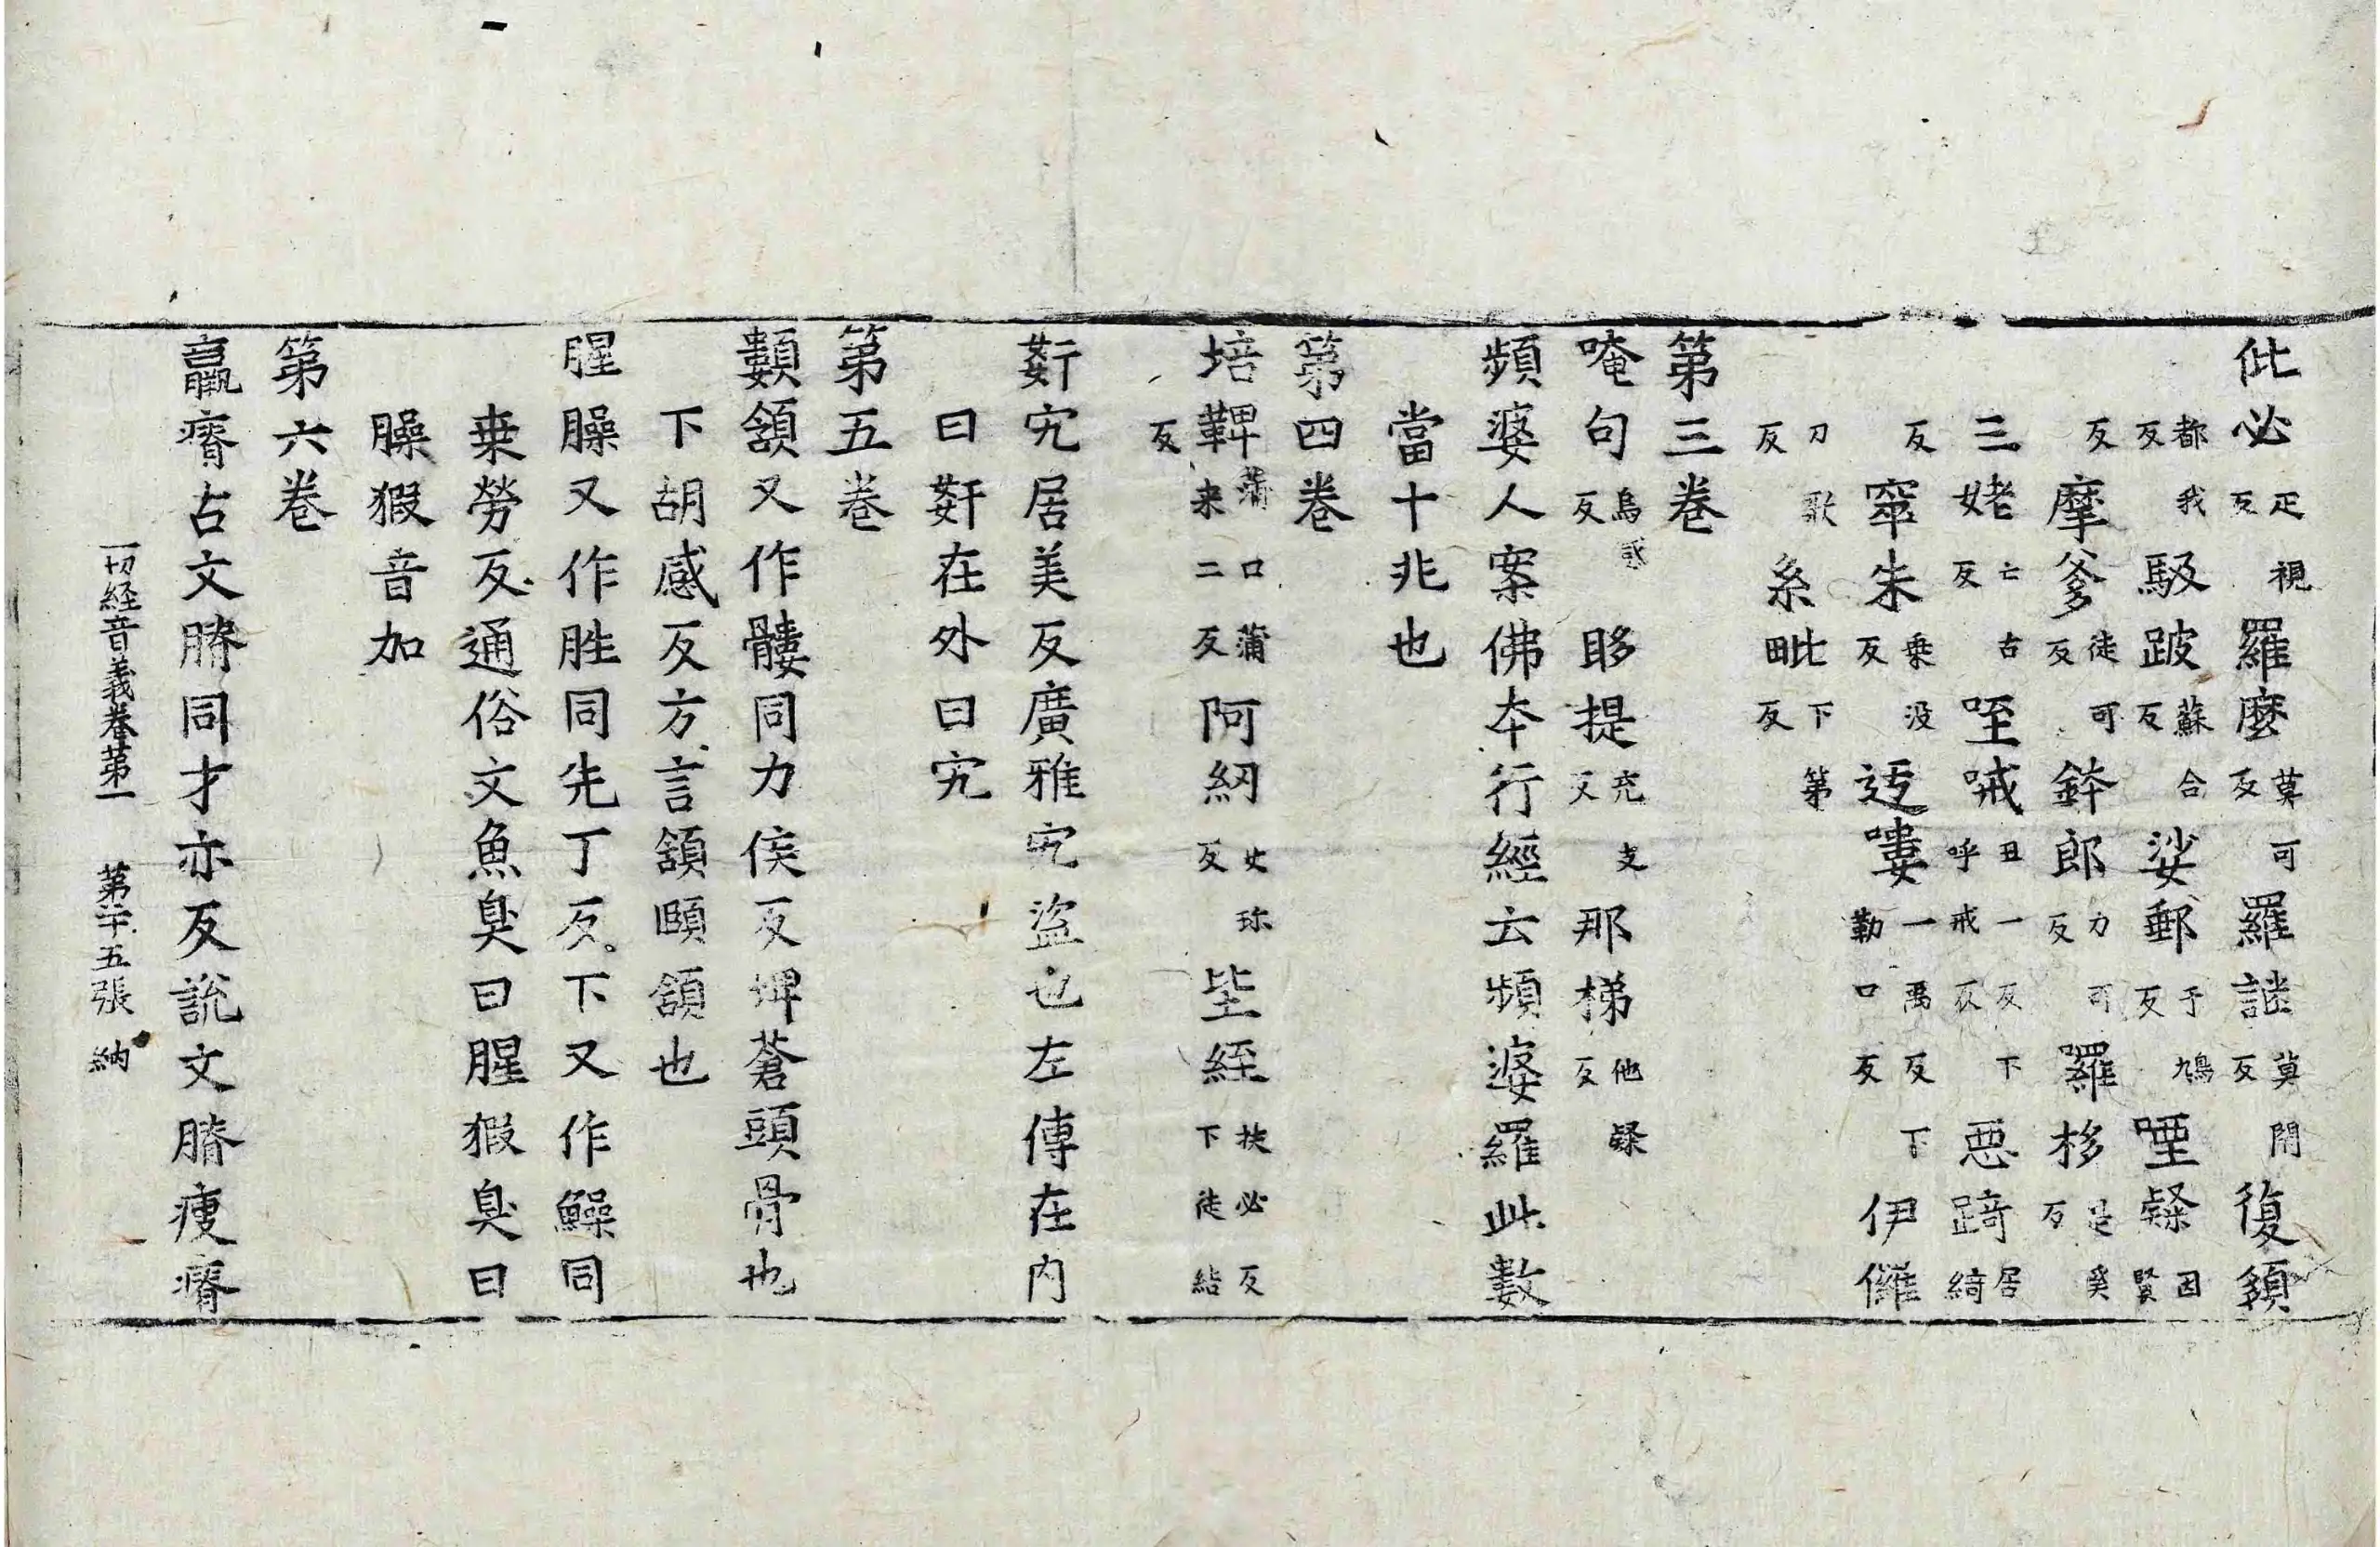 仳必疋視反羅麼莫可反羅謎莫閇反復頞
都我反駊跛蘇合反娑郵于鳩反堙礙因賢
反摩爹徒可反鉢郎力可反囉栘是奚反
三姥亡古反咥㖑丑一反下呼戒反惡踦居綺
反窣朱乗没反迃嘍一禹反下勒口反伊㒩
刀歌反糸毗下第反
第三卷
唵句烏惑反眵提充支反那梯他礙反
頻婆人案佛夲行經云頻婆羅此數
當十兆也
第四卷
培鞞蒲口蒲来二反阿紉女珎反坒絰扶必反下徒結
反
姧宄居美反廣雅宄盜也左傳在内
曰姧在外曰宄
第五卷
顀頷又作髏同力侯反埤蒼頭骨也
下胡感反方言頷頤頷也
腥臊又作胜同先丁反下又作鱢同
乗勞反通俗文魚臭曰腥猳臭曰
臊猳音加
第六卷
羸瘠古文膌同才亦反說文膌瘦瘠
一切経音義卷第一　第二十五張　納